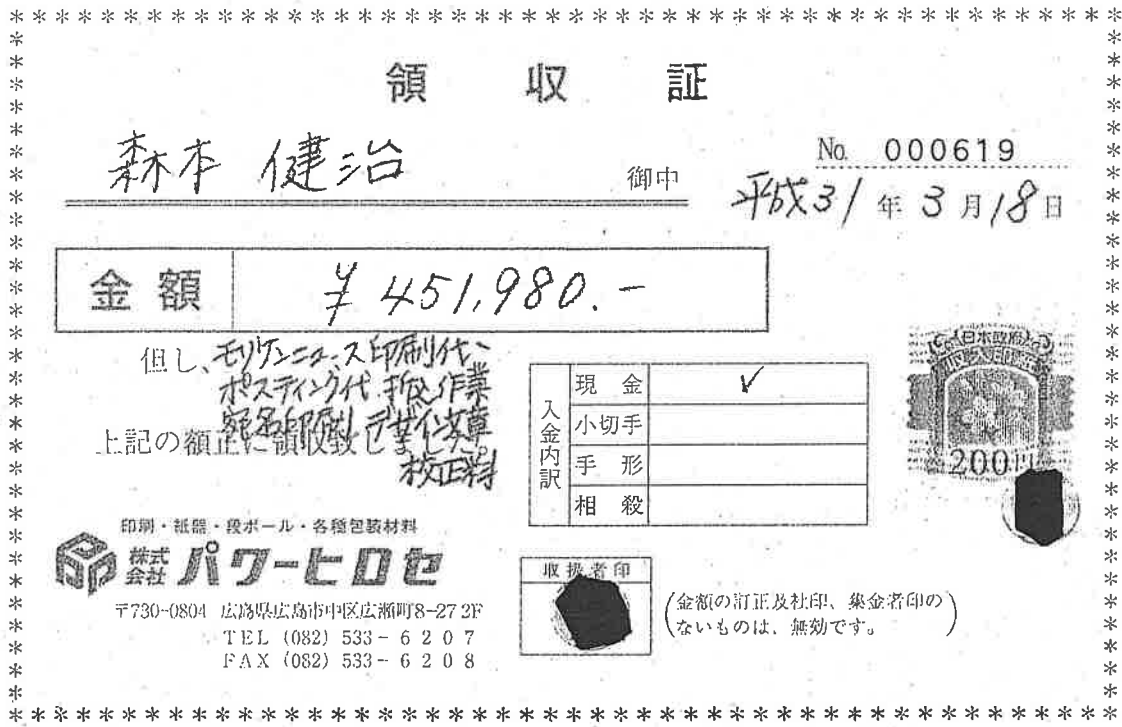 領収証
森本 健治 御中
No. 000619
平成31年3月18日
金額 ¥451,980.-
但し、モリケンニュース印刷代、
ポスティング代、折込作業
宛名印刷、デザイン文章
校正料
上記の額正に領収致しました
入金内訳
現金 ✓
小切手
手形
相殺
日本政府
収入印紙
200円
印刷・紙器・段ボール・各種包装材料
株式会社 パワーヒロセ
〒730-0804 広島県広島市中区広瀬町8-27 2F
TEL (082) 533-6207
FAX (082) 533-6208
取扱者印
(金額の訂正及社印、集金者印の
ないものは、無効です。)